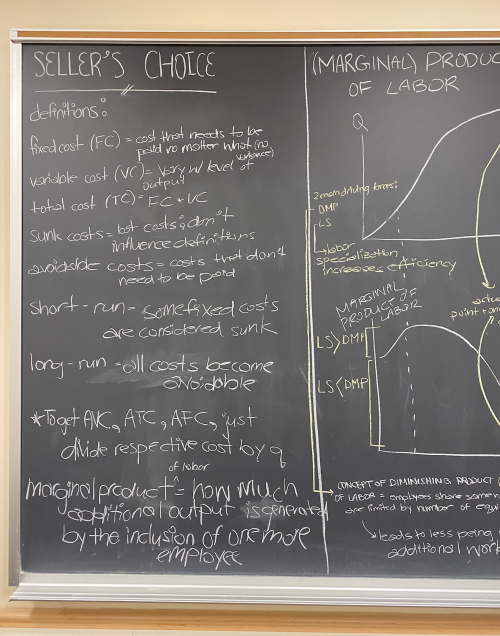 SELLER'S CHOICE
definitions:
fixed cost (FC) = cost that needs to be
paid no matter what (no
variance)
variable cost (VC) = vary w/ level of
output
total cost (TC) = FC + VC
sunk costs = lost costs; don't
influence definitions
avoidable costs = costs that don't
need to be paid
short-run = some fixed costs
are considered sunk
long-run = all costs become
avoidable
*To get AVC, ATC, AFC, just
divide respective cost by q
of labor
marginal product ^ = how much
additional output is generated
by the inclusion of one more
employee
(MARGINAL) PRODUC
OF LABOR
Q
2 main driving forces:
DMP
LS
labor
specialization
increases efficiency
MARGINAL
PRODUCT OF
LABOR
LS > DMP
LS < DMP
point
CONCEPT OF DIMINISHING PRODUCT
OF LABOR = employees share
are limited by number of
leads to less being
additional work